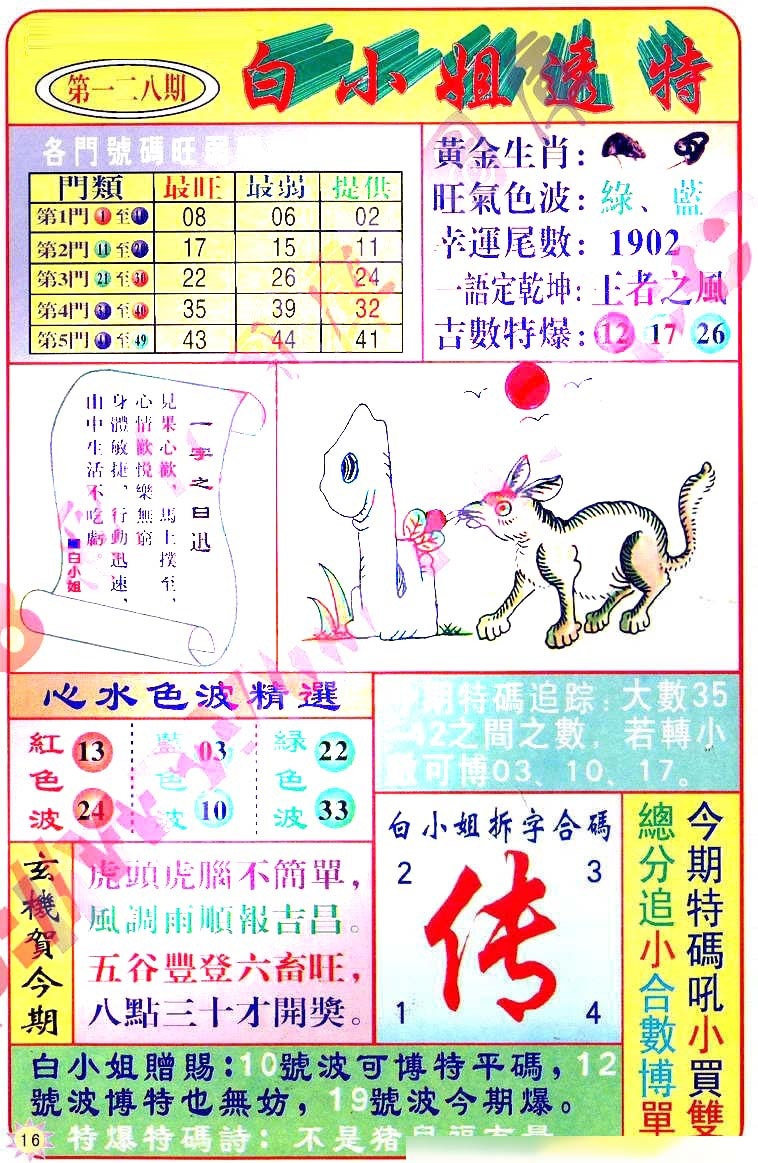 第一二八期
白小姐透特
各門號碼旺弱
門類 最旺 最弱 提供
第1門 1 至 08 06 02
第2門 11 至 17 15 11
第3門 21 至 30 22 26 24
第4門 至 40 35 39 32
第5門 至 49 43 44 41
黃金生肖:
旺氣色波: 綠、藍
幸運尾數: 1902
一語定乾坤: 王者之風
吉數特爆: 12 17 26
一字之曰迅
見果心歡,馬上撲至,
心情歡悦樂無窮
身體敏捷,行動迅速,
山中生活不吃虧。
白小姐
心水色波精選
紅色波 13 24
藍色波 03 10
綠色波 22 33
期特碼追踪:大數35
-42之間之數,若轉小
數可博03、10、17。
玄機賀今期
虎頭虎腦不簡單,
風調雨順報吉昌。
五谷豐登六畜旺,
八點三十才開獎。
白小姐拆字合碼
2 3
传
1 4
今期特碼吼小買雙
總分追小合數博單
白小姐贈賜:10號波可博特平碼,12
號波博特也無妨,19號波今期爆。
特爆特碼詩:不是猪
16